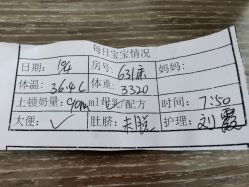 每日宝宝情况
日期：19/4 房号：631床 妈妈：
体温：36.4C 体重：3320
上顿奶量：90ml母乳/配方 时间：7:50
大便：✓ 肚脐：未脱 护理：刘霞